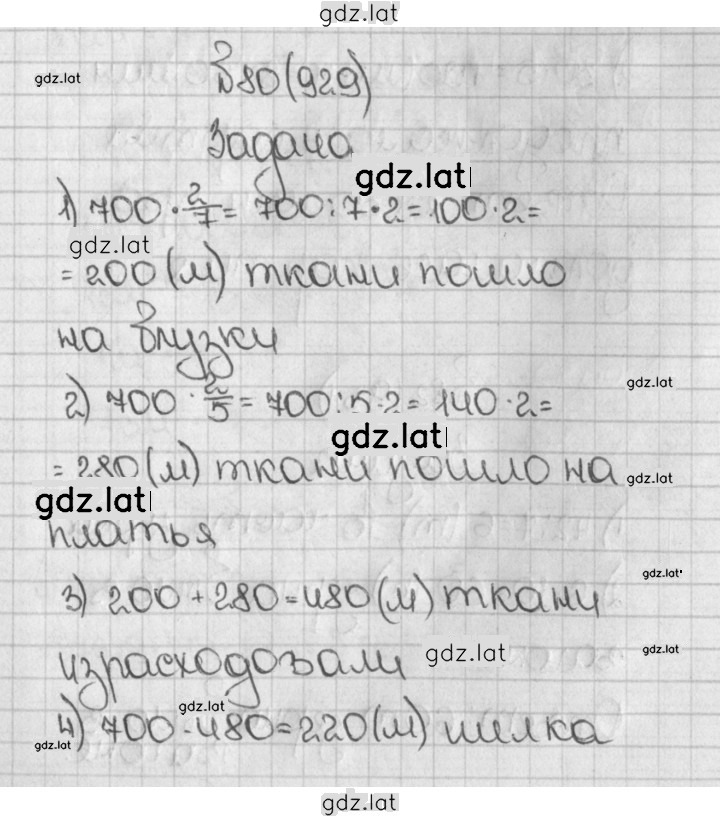 gdz.lat
№80(929)
gdz.lat
Задача
gdz.lat
1) 700 · 2/7 = 700 : 7 · 2 = 100 · 2 =
gdz.lat
= 200 (м) ткани пошло
на блузки
2) 700 · 2/5 = 700 : 5 · 2 = 140 · 2 =
gdz.lat
gdz.lat
= 280 (м) ткани пошло на
gdz.lat
gdz.lat
платья
3) 200 + 280 = 480 (м) ткани
gdz.lat
израсходовали
gdz.lat
gdz.lat
gdz.lat
4) 700 - 480 = 220 (м) шелка
gdz.lat
gdz.lat